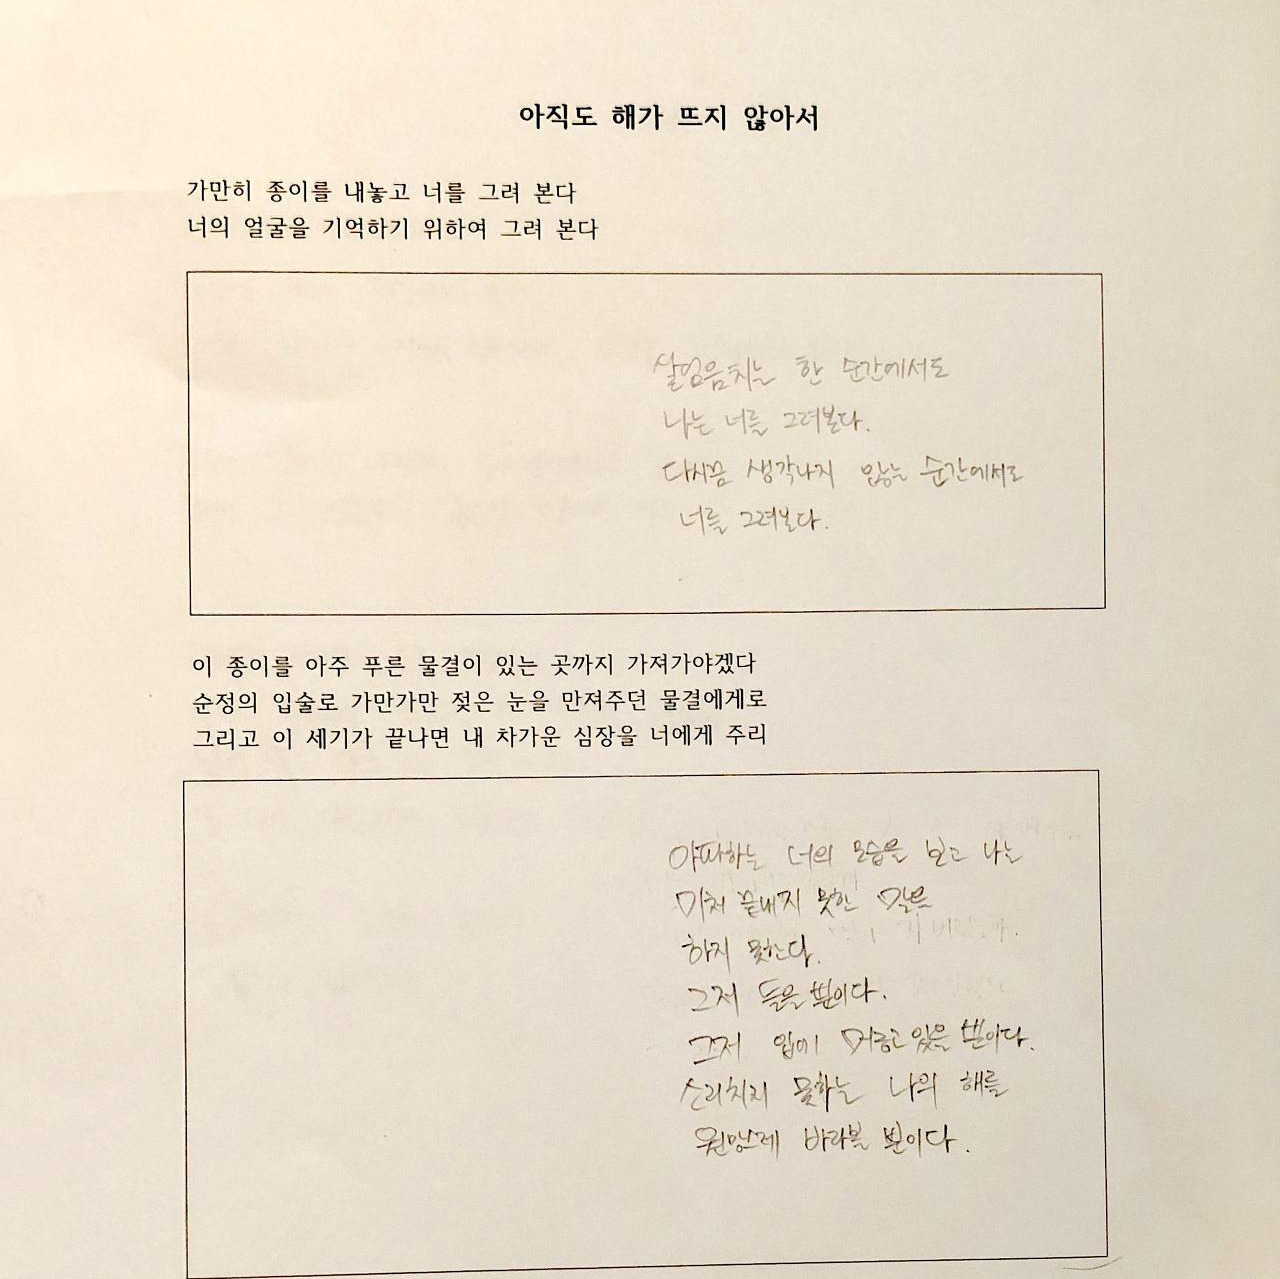 아직도 해가 뜨지 않아서
가만히 종이를 내놓고 너를 그려 본다
너의 얼굴을 기억하기 위하여 그려 본다
한 순간에서도
나는 너를 그려본다.
다시끔 생각나지 않는 순간에서도
너를 그려본다.
이 종이를 아주 푸른 물결이 있는 곳까지 가져가야겠다
순정의 입술로 가만가만 젖은 눈을 만져주던 물결에게로
그리고 이 세기가 끝나면 내 차가운 심장을 너에게 주리
아파하는 너의 모습을 보고 나는
미처 끝내지 못한 말을
하지 못한다.
그저 들을 뿐이다.
그저 입에 머금고 있을 뿐이다.
소리치지 못하는 나의 해를
원망스레 바라볼 뿐이다.